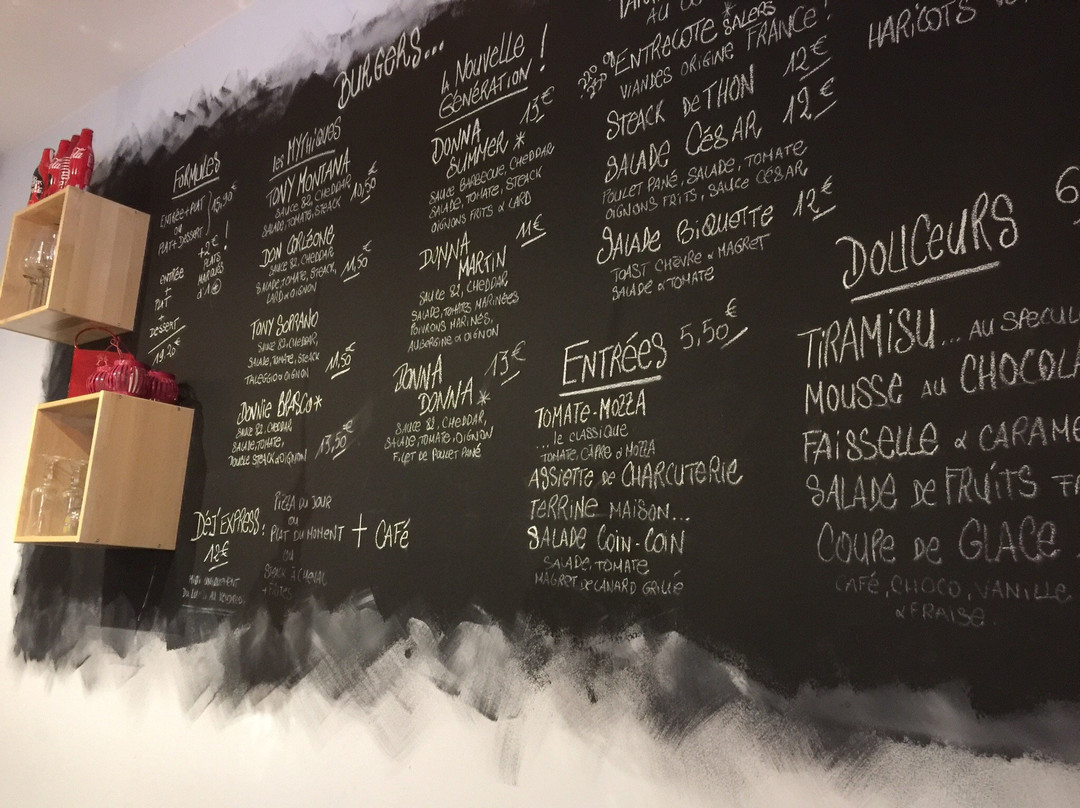 FORMULES
ENTRÉE+PLAT
OU
PLAT+DESSERT
15,90€
+2€ !
PLATS
MARQUÉS
ENTRÉE
+
PLAT
+
DESSERT
19.20€
BURGERS...
les MYTHIQUES
TONY MONTANA
10,50€
SAUCE B2, CHEDDAR
SALADE, TOMATE, STEACK
DON CORLEONE
SAUCE B2, CHEDDAR
11,50€
SALADE, TOMATE, STEACK,
LARD & OIGNON
TONY SOPRANO
SAUCE B2, CHEDDAR,
SALADE, TOMATE, STEACK
11,50€
TALEGGIO & OIGNON
DONNIE BRASCO*
SAUCE B2, CHEDDAR
SALADE, TOMATE,
13,50€
DOUBLE STEACK & OIGNON
DÉJ'EXPRESS:
12€
PIZZA DU JOUR
OU
PLAT DU MOMENT
OU
STEACK À CHEVAL
+ FRITES
+ CAFÉ
la NOUVELLE
GÉNÉRATION !
DONNA
SUMMER *
13€
SAUCE BARBECUE, CHEDDAR
SALADE, TOMATE, STEACK
OIGNONS FRITS & LARD
DONNA
MARTIN
11€
SAUCE B2, CHEDDAR
SALADE, TOMATES MARINÉES
POIVRONS MARINÉS,
AUBERGINE & OIGNON
DONNA
DONNA *
13€
SAUCE B2, CHEDDAR,
SALADE, TOMATE, OIGNON
FILET DE POULET PANÉ
AU
ENTRECOTE SALERS
VIANDES ORIGINE FRANCE !
STEACK de THON 12€
SALADE CÉSAR 12€
POULET PANÉ, SALADE, TOMATE
OIGNONS FRITS, SAUCE CÉSAR
SALADE BIQUETTE 12€
TOAST CHÈVRE & MAGRET
SALADE & TOMATE
ENTRÉES 5,50€
TOMATE-MOZZA
...le CLASSIQUE
TOMATE, CÂPRE & MOZZA
ASSIETTE DE CHARCUTERIE
TERRINE MAISON...
SALADE COIN-COIN
SALADE, TOMATE
MAGRET DE CANARD GRILLÉ
HARICOTS
DOUCEURS
6
TIRAMISU... AU SPECUL
MOUSSE AU CHOCOLA
FAISSELLE & CARAME
SALADE DE FRUITS FR
COUPE DE GLACE
CAFÉ, CHOCO, VANILLE
& FRAISE.